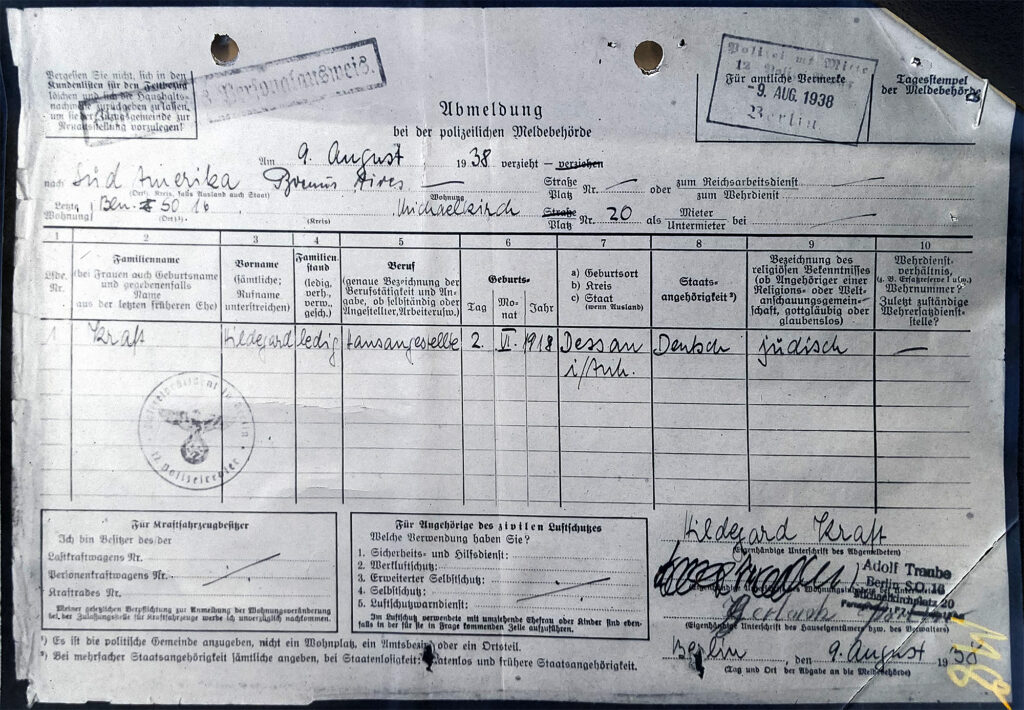 Vergessen Sie nicht, sich in den
Kundenlisten für den Fettbezug
löschen und sich die Haushalts-
nachweise zurückgeben zu lassen,
um sie der Zuzugsgemeinde zur
Neuausstellung vorzulegen!
Personalausweis.
Abmeldung
bei der polizeilichen Meldebehörde
Für amtliche Vermerke
Polizei
-9. AUG. 1938
Berlin
Tagesstempel
der Meldebehörde
Am 9. August 1938 verzieht — verziehen
nach Süd Amerika Buenos Aires — Straße Platz Nr. — oder zum Reichsarbeitsdienst zum Wehrdienst —
(Ort, Kreis, falls Ausland auch Staat)
Letzte Wohnung: Bln. SO 16 Michaelkirch Straße Platz Nr. 20 als Mieter Untermieter bei —
(Ort) (Kreis)
1 2 3 4 5 6 7 8 9 10
Lfde. Nr.
Familienname
(bei Frauen auch Geburtsname
und gegebenenfalls
Name
aus der letzten früheren Ehe)
Vorname
(sämtliche;
Rufname
unterstreichen)
Familien
stand
(ledig,
verh.,
verw.,
gesch.)
Beruf
(genaue Bezeichnung der
Berufstätigkeit und An-
gabe, ob selbständig oder
Angestellter, Arbeiter usw.)
Geburts-
Tag
Mo-
nat
Jahr
a) Geburtsort
b) Kreis
c) Staat
(wenn Ausland)
Staats-
angehörigkeit ²)
Bezeichnung des
religiösen Bekenntnisses
(ob Angehöriger einer
Religions- oder Welt-
anschauungsgemein-
schaft, gottgläubig oder
glaubenslos)
Wehrdienst-
verhältnis,
(z. B. Ersatzreserve I usw.)
Wehrnummer?
Zuletzt zuständige
Wehrersatzdienst-
stelle?
1 Kraft Hildegard ledig Hausangestellte 2. VI. 1918 Dessau Deutsch jüdisch —
i/Anh.
12. Polizeirevier
Für Kraftfahrzeugbesitzer
Ich bin Besitzer des der
Lastkraftwagens Nr.
Personenkraftwagens Nr.
Kraftrades Nr.
Meiner gesetzlichen Verpflichtung zur Anmeldung der Wohnungsveränderung
bei der Zulassungsstelle für Kraftfahrzeuge werde ich unverzüglich nachkommen.
Für Angehörige des zivilen Luftschutzes
Welche Verwendung haben Sie?
1. Sicherheits- und Hilfsdienst:
2. Werkluftschutz:
3. Erweiterter Selbstschutz:
4. Selbstschutz:
5. Luftschutzwarndienst:
Im Luftschutz verwendete mit umziehende Ehefrau oder Kinder sind eben-
falls in der für sie in Frage kommenden Zeile aufzuführen.
Hildegard Kraft
(Eigenhändige Unterschrift des Abgemeldeten)
Adolf Traube
Berlin S.O. 16
Michaelkirchplatz 20
Gerlach
(Eigenhändige Unterschrift des Hauseigentümers bzw. des Verwalters)
Berlin, den 9. August 1938
(Tag und Ort der Abgabe an die Meldebehörde)
¹) Es ist die politische Gemeinde anzugeben, nicht ein Wohnplatz, ein Amtsbezirk oder ein Ortsteil.
²) Bei mehrfacher Staatsangehörigkeit sämtliche angeben, bei Staatenlosigkeit: Staatenlos und frühere Staatsangehörigkeit.